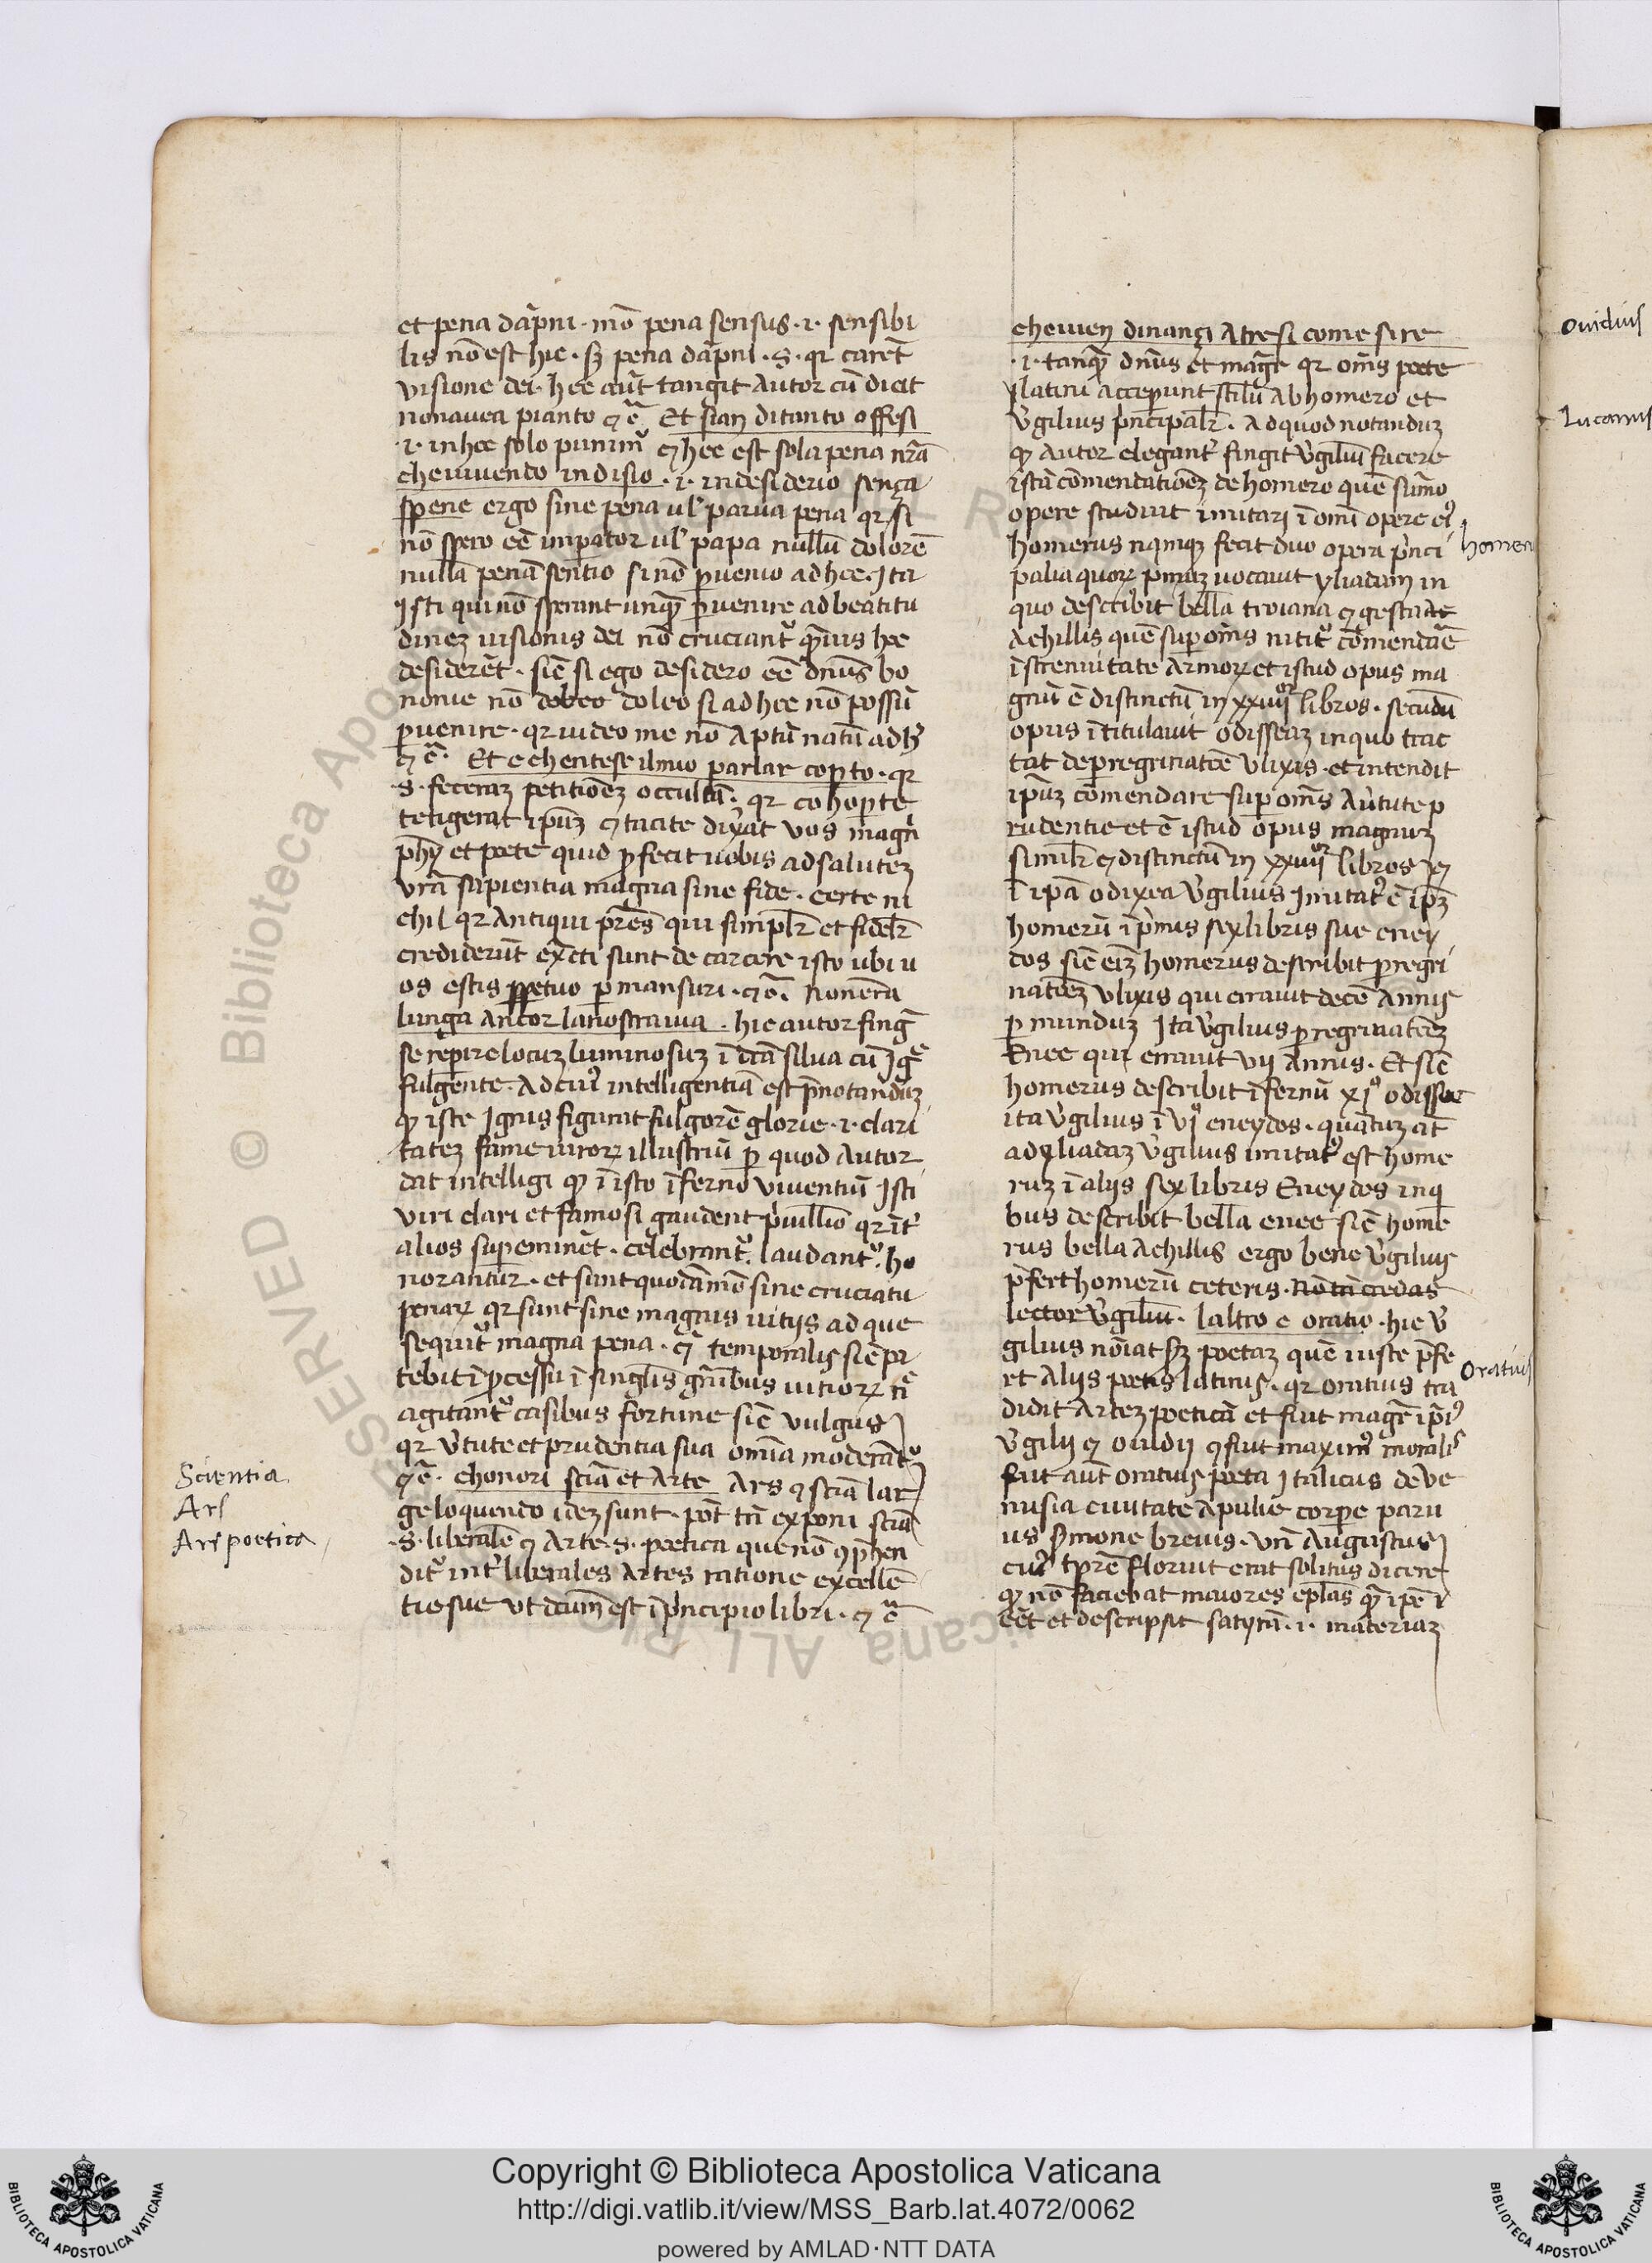 et pena dāpni · mō pena sensus · i · sensibi
lis nō est hic · sꝫ pena dāpni · s · qr caret̄
visione dei · hec aūt tangit autor cū dicit
nonavea pianto ⁊ c̄ Et sian di tanto offesi
· i · in hec solo punim᷒ ⁊ hec est sola pena nr̄a
che vivendo in disio · i · in desiderio sença
spene ergo sine pena ul᷒ parva pena qr si
nō spero eē imꝑator ul᷒ papa nullū dolorē
nullā penā sentio si nō ꝑvenio ad hec · Ita
Isti qui nō sperant unqꝫ ꝑvenire ad beatitu
dineꝫ visionis dei nō cruciant᷒ qꝫvis hec
desiderēt · sic̄ si ego desidero eē dn̄us bo
nonie nō doleo doleo si ad hec nō possū
ꝑvenire · qr video me nō aptū natū ad h᷒
⁊ c̄ · Et e chentese il mio parlar coꝑto · qr
· s · feceraꝫ petitiōeꝫ occultā · qr cohoꝑte
tetigerat ipūꝫ ⁊ tacite dix᷒at vos magni
phȳ et poete quid ꝓfecit vobis ad saluteꝫ
vrā sapientia magna sine fide · certe ni
chil qr antiqui prēs qui simplr̄ et fidelr̄
crediderūt exacti sunt de carcere isto ubi v
os estis ꝑpetuo ꝑmansuri · ⁊ c̄ · Non era
lunga ancor la nostra via · hic autor finḡ
se reꝑire locuꝫ luminosuꝫ ī dc̄ā silva cū Iḡe
fulgente · Ad cui᷒ intelligentiā est p̄notanduꝫ
ꝙ iste Ignis figurat fulgorē glorie · i · clari
tateꝫ fame viroꝝ illustriū ꝑ quod autor
dat intelligi ꝙ ī isto īferno viventiū Isti
viri clari et famosi gaudent p᷒vill̄io qr īt᷒
alios suꝑeminēt · celebrant᷒ · laudant᷒ · ho
norantur · et sunt quodāmō sine cruciatu
penaꝝ qr sunt sine magnis vitijs ad que
sequit᷒ magna pena · ⁊ temporalis sic̄ pa
tebit ī ꝓcessu ī singl̄is gn̄ibus vitioꝝ n̄c
agitant᷒ casibus fortune sic̄ vulgus
qr v᷒tute et prudentia sua om̄ia moderāt᷒
⁊ c̄ · chonori sciā et arte Ars ⁊ sciā lar
ge loquendo ideꝫ sunt · pōt tn̄ exponi sciā
· s · liberalē ⁊ Arte · s · poetica que nō ꝯp̄hen
dit᷒ int᷒ liberales artes ratione excellē
tie sue ut dcūm est ī p᷒ncipio libri · ⁊ c̄
Scientia
Ars
Ars poetica
che vien dinançi a tre si come sire
· i · tanqꝫ dn̄us et magr̄ qr om̄s poete
latini acceperunt stilū ab homero et
v᷒gilius p᷒ncipalr̄ · Ad quod notanduꝫ
ꝙ autor elegant᷒ fingit v᷒giliū facere
istā cōmendatiōeꝫ de homero quē sūmo
opere studuit imitari ī omī opere ei᷒
homerus nqꝫ fecit duo opera p᷒nci
palia quoꝝ p᷒muꝫ vocavit yliadam in
quo describit bella troiana ⁊ gesta ac
Achillis quē suꝑ om̄s nitit᷒ cōmendāe
ī strenuitate armoꝝ et istud opus ma
gnū ē distinctū in xxiiijor libros · secundū
opus ītitulavit odisseaꝫ in quo trac
tat de ꝑegrinatōe Ulixis · et intendit
ipūꝫ cōmendare suꝑ om̄s a v᷒tute p
rudentie et ē istud opus magnuꝫ
similr̄ ⁊ distinctū in xxiiijor libros ⁊
ī ipā odixea v᷒gilius Imitat᷒ ē ipꝫ
homerū ī p᷒mis sex libris sue eney
dos sic̄ eiꝫ homerus describit ꝑegri
natōeꝫ Ulixis qui erravit decē annis
ꝑ munduꝫ Ita v᷒gilius ꝑegrinatōeꝫ
Enee qui erravit vii annis · Et sic̄
homerus describit īfernū xjo odissee
ita v᷒gilius ī vjo eneydos · quantuꝫ at̄
ad yliadaꝫ v᷒gilius imitat᷒ est home
ruꝫ ī alijs sex libris Eneydos in q
bus describit bella enee sic̄ home
rus bella Achillis ergo bene v᷒gilius
p̄fert homerū ceteris · Nō tn̄ credas
lector v᷒giliū · laltro e oratio · hic v᷒
gilius nōiat scꝫ poetaꝫ quē iuste p̄fe
rt alijs poetis latinis · qr oratius tra
didit arteꝫ poeticā et fuit magr̄ ip̄i᷒
v᷒gilij ⁊ ovidij ⁊ fuit maxim᷒ moralis
fuit aūt oratius poeta Italicus de ve
nusia civitate apulie corꝑe parv
us s᷒mone brevis · Un̄ Augustus
cui᷒ tp̄re floruit erat solitus dicere
ꝙ nō faciebat maiores ep̄las qꝫ ipē
eēt et descripsit satyrā · i · materiaꝫ
homerus
Oratius
Ovidius
Lucanus
© Biblioteca Apostolica Vaticana ALL RIGHTS RESERVED
Copyright © Biblioteca Apostolica Vaticana
http://digi.vatlib.it/view/MSS_Barb.lat.4072/0062
powered by AMLAD · NTT DATA
BIBLIOTECA APOSTOLICA VATICANA
BIBLIOTECA APOSTOLICA VATICANA